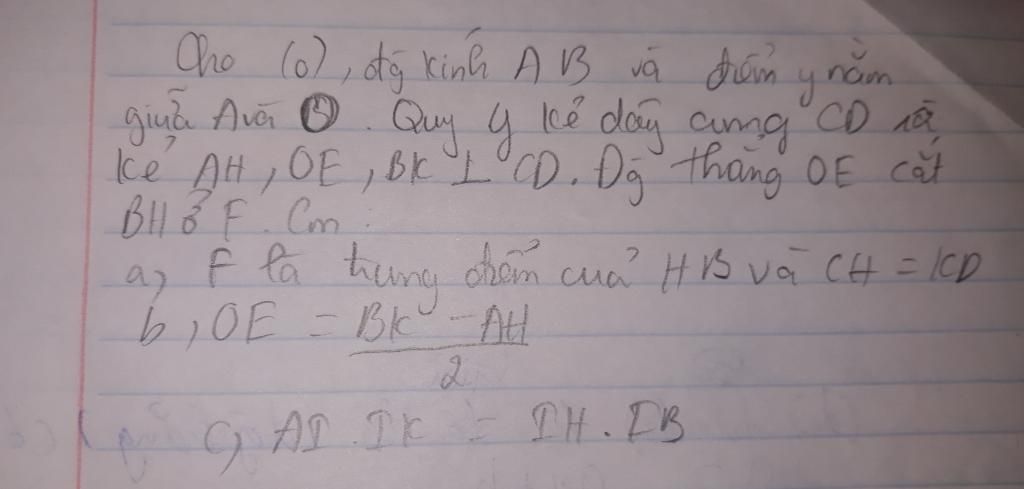 Cho (O), đg kính AB và điểm y nằm
giữa A và O. Quy y kẻ dây cung CD và
kẻ AH, OE, BK ⊥ CD. Đg thẳng OE cắt
BH ở F. Cm:
a, F là trung điểm của HB và CH = KD
b, OE = \frac{BK - AH}{2}
c, AI . IK = IH . IB